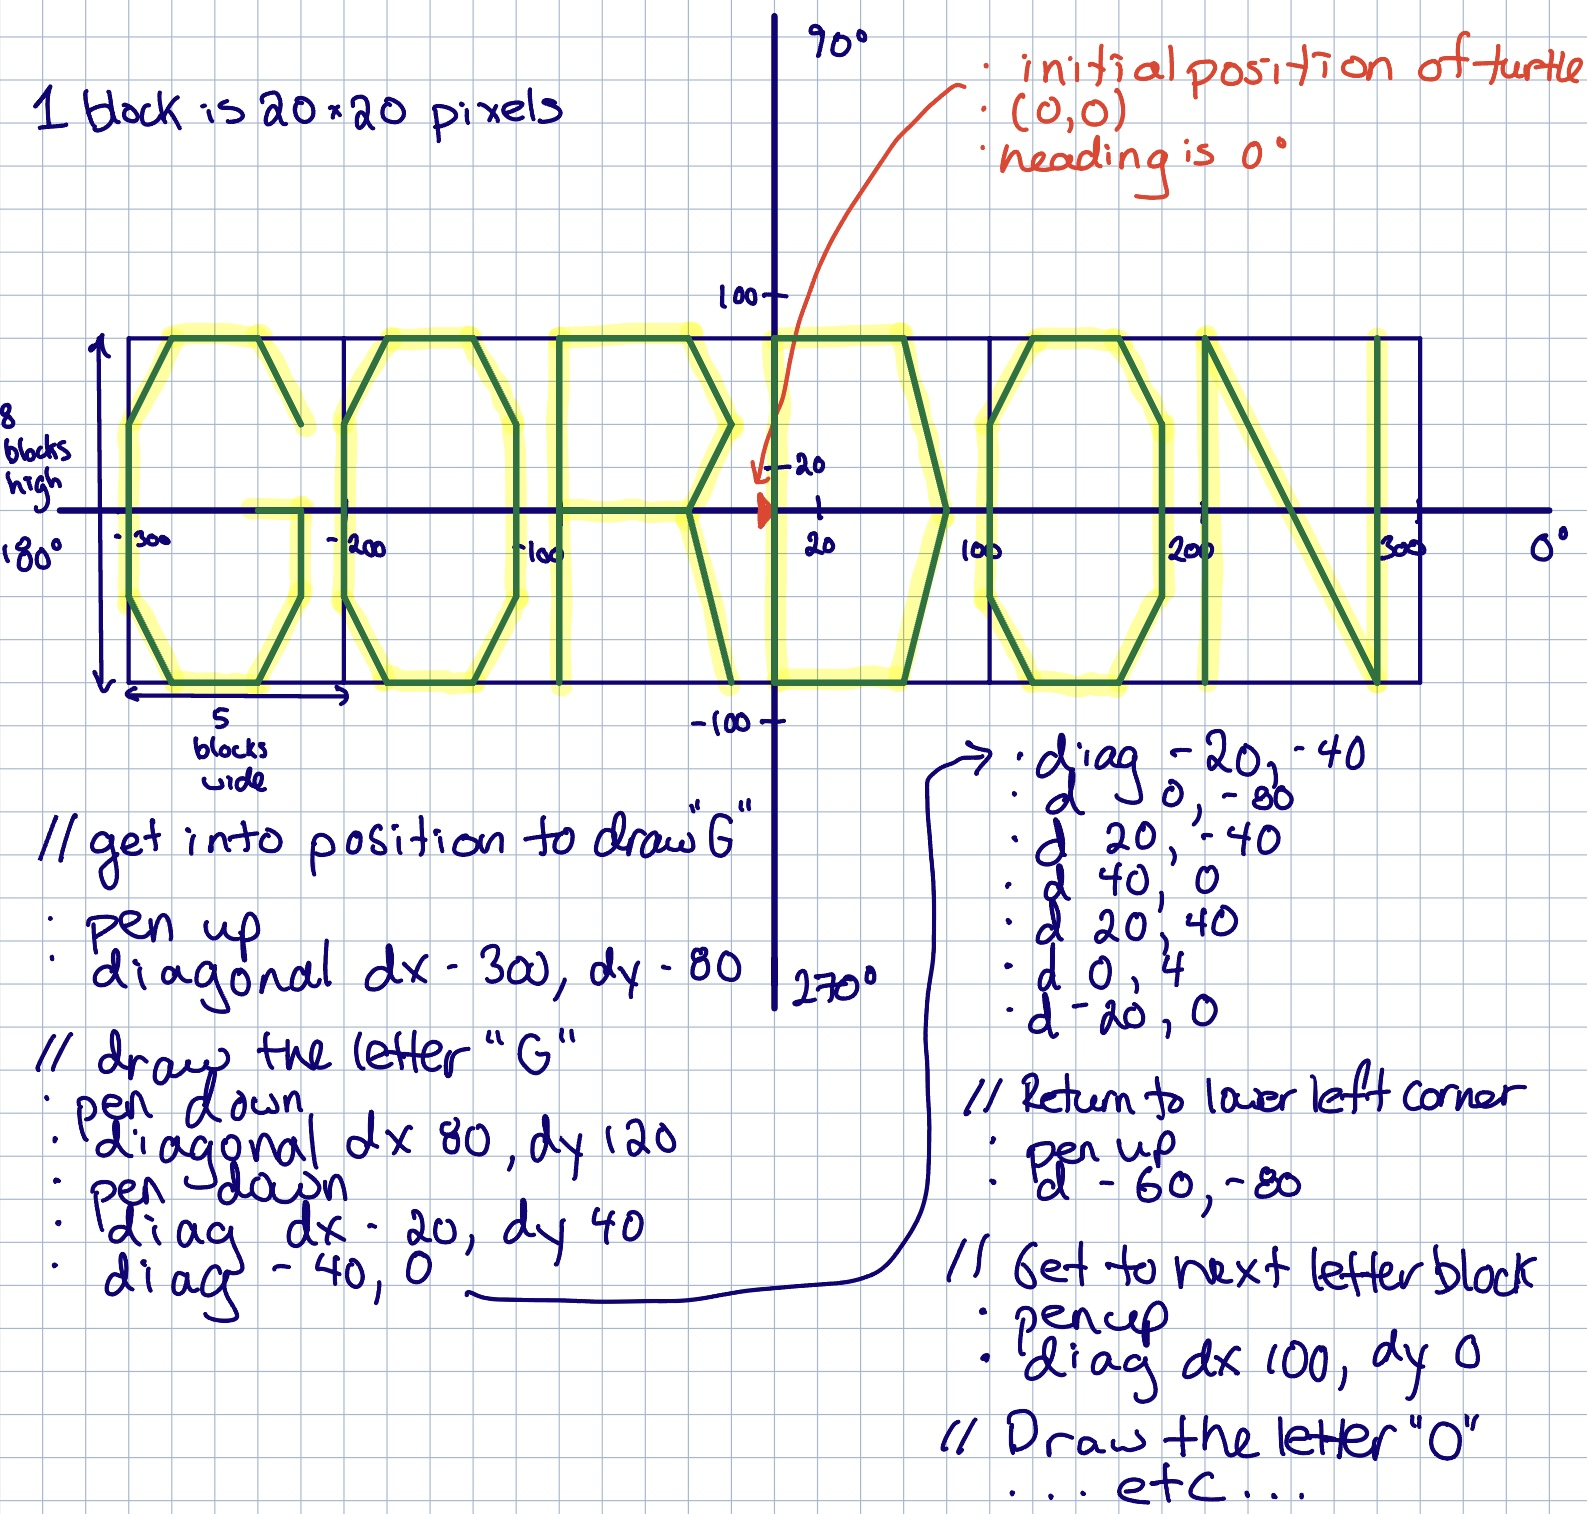 90°
· initial position of turtle
· (0,0)
· heading is 0°
1 block is 20×20 pixels
100
8
blocks
high
20
GORDON
180°
-300
-200
-100
20
100
200
300
0°
5
blocks
wide
-100
270°
// get into position to draw "G"
· pen up
· diagonal dx -300, dy -80
// draw the letter "G"
· pen down
· diagonal dx 80, dy 120
· pen down
· diag dx -20, dy 40
· diag -40, 0
· diag -20, -40
· d 0, -80
· d 20, -40
· d 40, 0
· d 20, 40
· d 0, 4
· d -20, 0
// Return to lower left corner
· pen up
· d -60, -80
// Get to next letter block
· pen up
· diag dx 100, dy 0
// Draw the letter "O"
... etc ...